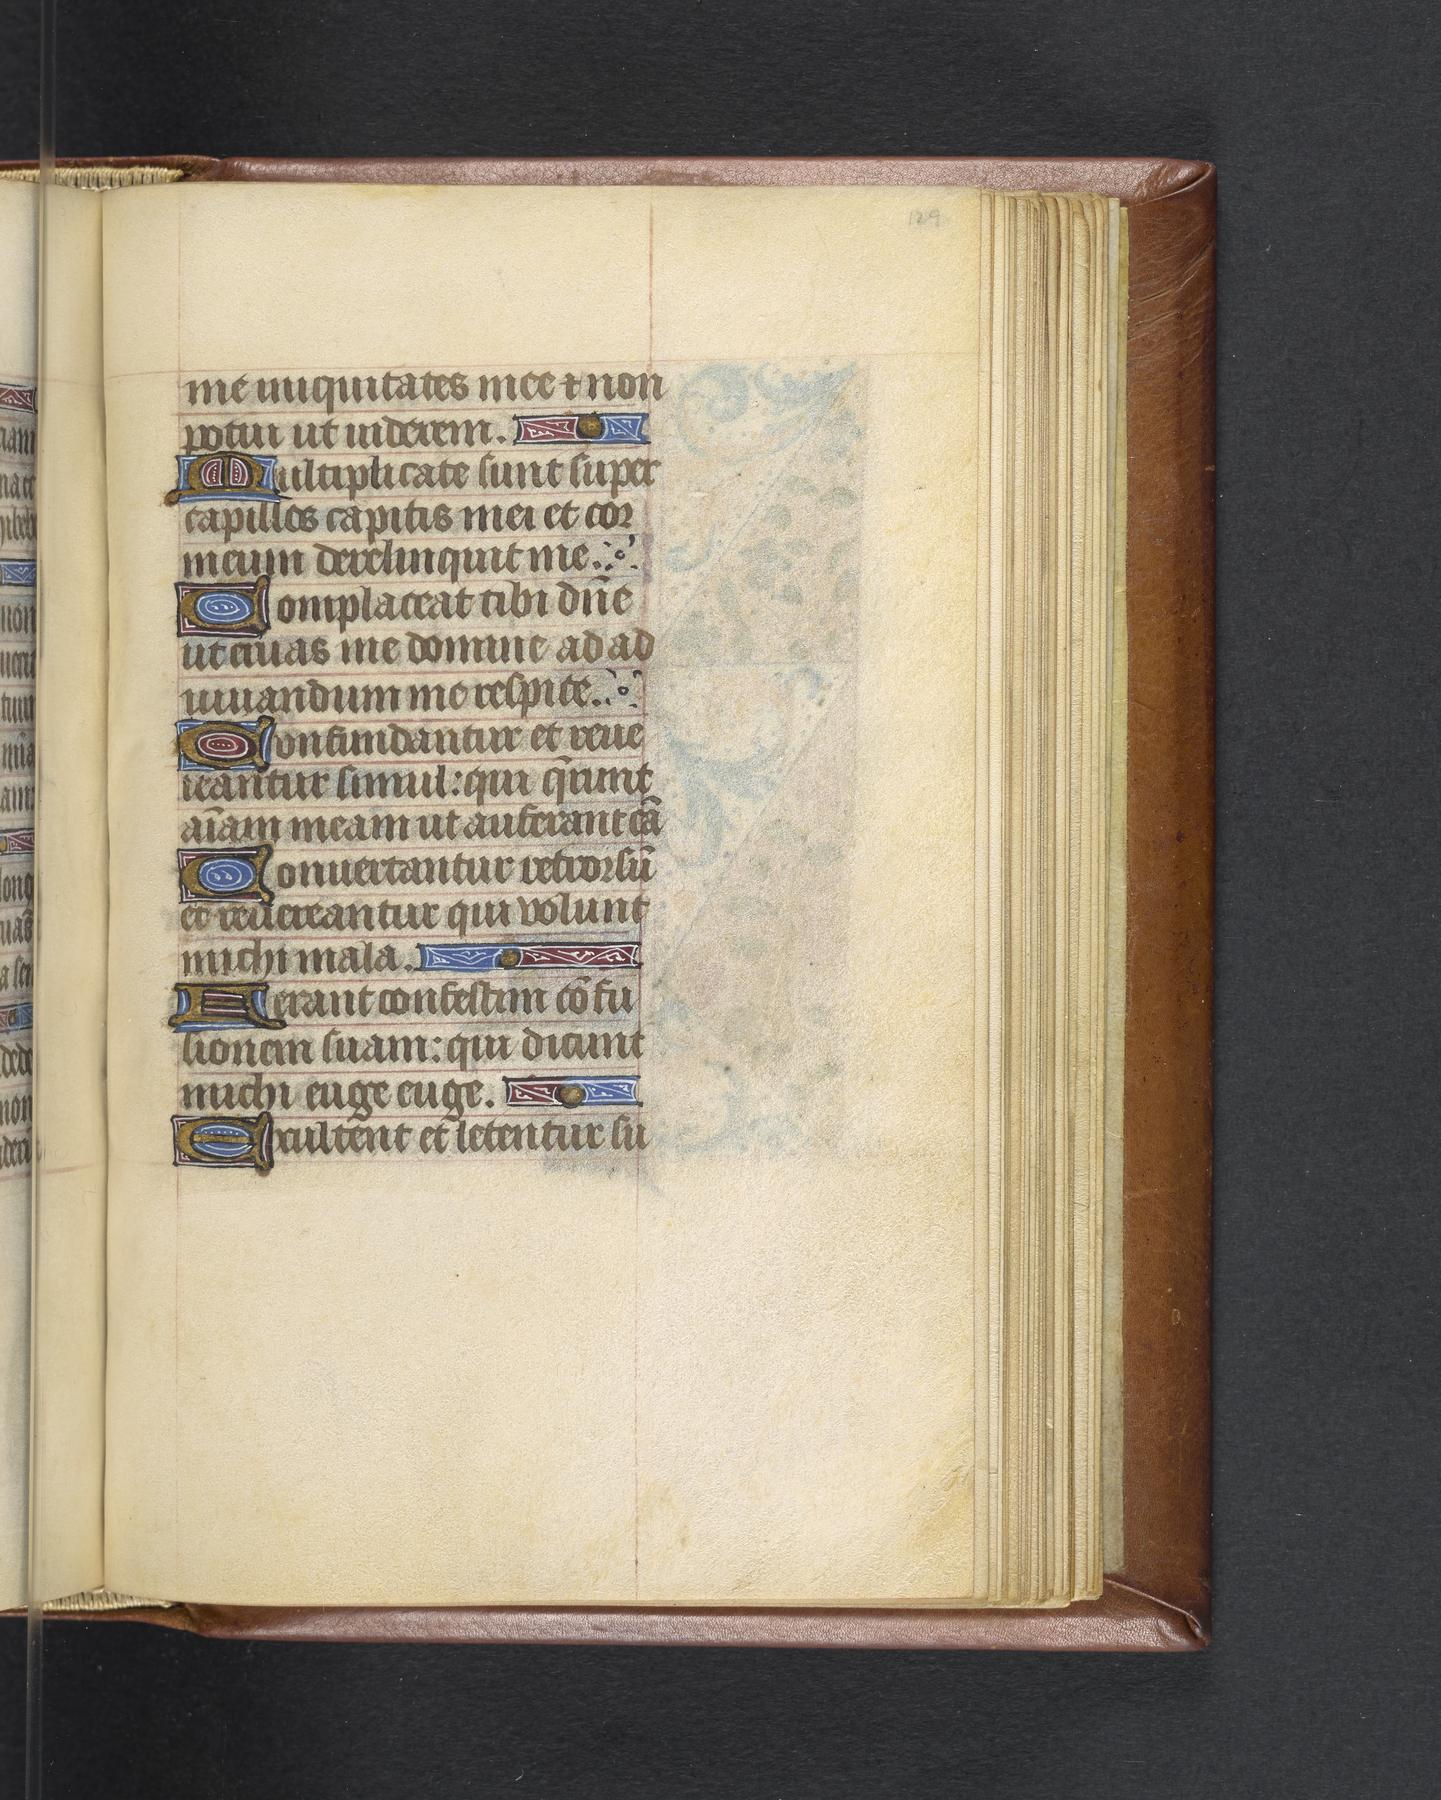 129
me iniquitates mee ⁊ non
potui ut uiderem.
Multiplicate sunt super
capillos capitis mei et cor
meum dereliquit me.
Complaceat tibi dn̄e
ut eruas me domine ad ad
iuuandum me respice.
Confundantur et reue
reantur simul: qui q̄runt
aīam meam ut auferant eā
Conuertantur retrorsū
et reuereantur qui volunt
michi mala.
Ferant confestim cōfu
sionem suam: qui dicunt
michi euge euge.
Exultent et letentur su